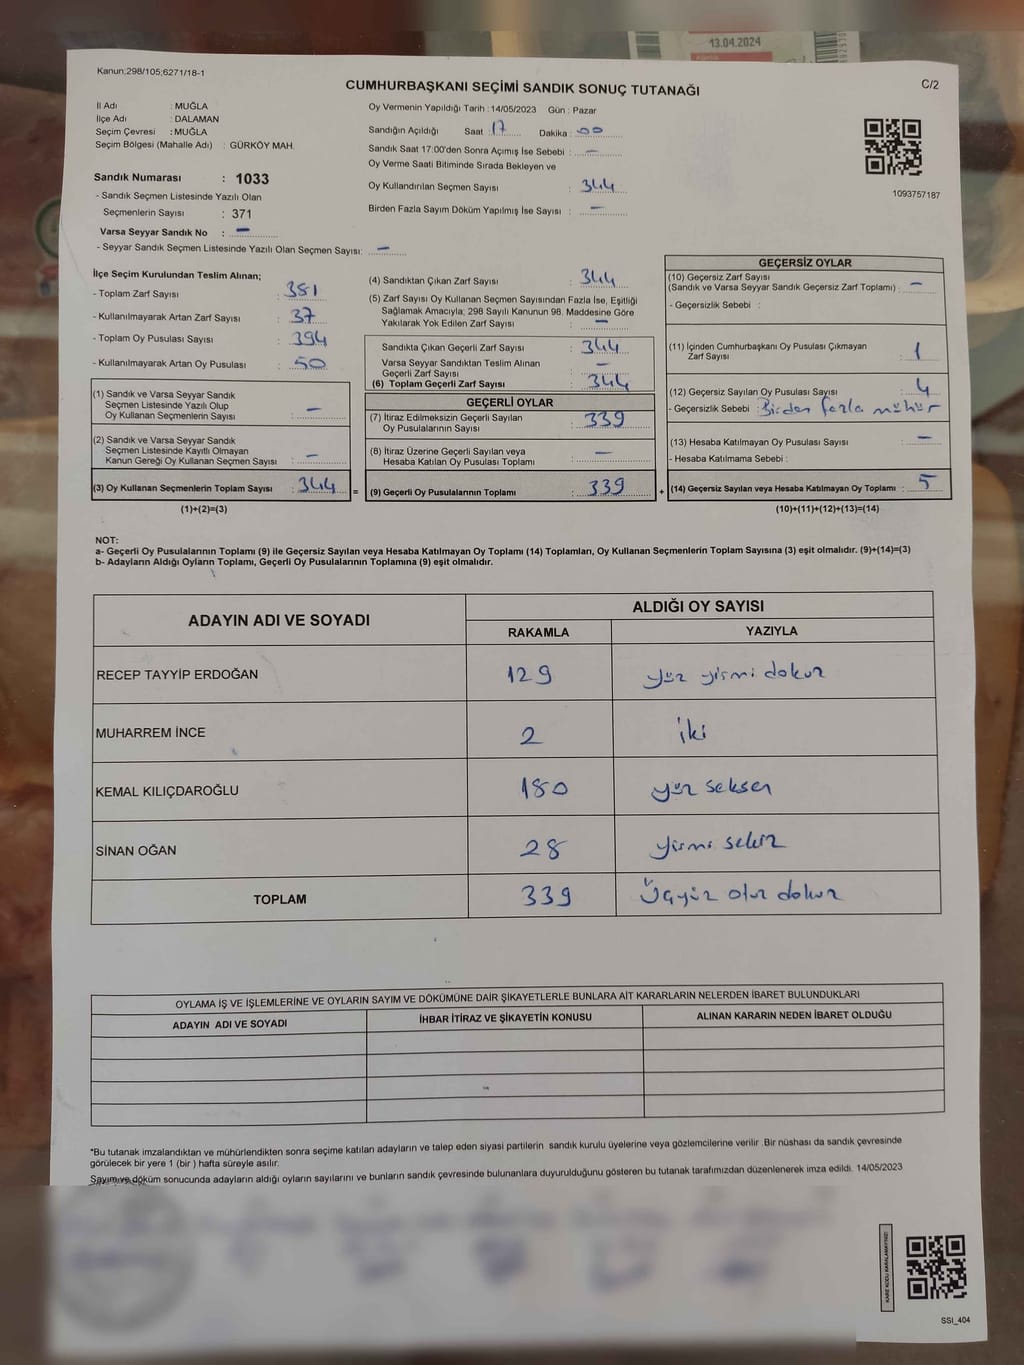 13.04.2024
Kanun;298/105;6271/18-1
CUMHURBAŞKANI SEÇİMİ SANDIK SONUÇ TUTANAĞI
C/2
İl Adı : MUĞLA
İlçe Adı : DALAMAN
Seçim Çevresi : MUĞLA
Seçim Bölgesi (Mahalle Adı) : GÜRKÖY MAH.
Sandık Numarası : 1033
- Sandık Seçmen Listesinde Yazılı Olan
Seçmenlerin Sayısı : 371
Varsa Seyyar Sandık No : –
- Seyyar Sandık Seçmen Listesinde Yazılı Olan Seçmen Sayısı: –
Oy Vermenin Yapıldığı Tarih : 14/05/2023 Gün : Pazar
Sandığın Açıldığı Saat : 17 Dakika : 00
Sandık Saat 17:00'den Sonra Açımış İse Sebebi : –
Oy Verme Saati Bitiminde Sırada Bekleyen ve
Oy Kullandırılan Seçmen Sayısı : 344
Birden Fazla Sayım Döküm Yapılmış İse Sayısı : –
1093757187
İlçe Seçim Kurulundan Teslim Alınan;
- Toplam Zarf Sayısı : 381
- Kullanılmayarak Artan Zarf Sayısı : 37
- Toplam Oy Pusulası Sayısı : 394
- Kullanılmayarak Artan Oy Pusulası : 50
(1) Sandık ve Varsa Seyyar Sandık
Seçmen Listesinde Yazılı Olup
Oy Kullanan Seçmenlerin Sayısı : –
(2) Sandık ve Varsa Seyyar Sandık
Seçmen Listesinde Kayıtlı Olmayan
Kanun Gereği Oy Kullanan Seçmen Sayısı : –
(3) Oy Kullanan Seçmenlerin Toplam Sayısı : 344
(1)+(2)=(3)
(4) Sandıktan Çıkan Zarf Sayısı : 344
(5) Zarf Sayısı Oy Kullanan Seçmen Sayısından Fazla İse, Eşitliği
Sağlamak Amacıyla; 298 Sayılı Kanunun 98. Maddesine Göre
Yakılarak Yok Edilen Zarf Sayısı : –
Sandıkta Çıkan Geçerli Zarf Sayısı : 344
Varsa Seyyar Sandıktan Teslim Alınan
Geçerli Zarf Sayısı : –
(6) Toplam Geçerli Zarf Sayısı : 344
GEÇERLİ OYLAR
(7) İtiraz Edilmeksizin Geçerli Sayılan
Oy Pusulalarının Sayısı : 339
(8) İtiraz Üzerine Geçerli Sayılan veya
Hesaba Katılan Oy Pusulası Toplamı : –
= (9) Geçerli Oy Pusulalarının Toplamı : 339 +
GEÇERSİZ OYLAR
(10) Geçersiz Zarf Sayısı
(Sandık ve Varsa Seyyar Sandık Geçersiz Zarf Toplamı) : –
- Geçersizlik Sebebi :
(11) İçinden Cumhurbaşkanı Oy Pusulası Çıkmayan
Zarf Sayısı : 1
(12) Geçersiz Sayılan Oy Pusulası Sayısı : 4
- Geçersizlik Sebebi : Birden fazla mühür
(13) Hesaba Katılmayan Oy Pusulası Sayısı : –
- Hesaba Katılmama Sebebi :
(14) Geçersiz Sayılan veya Hesaba Katılmayan Oy Toplamı : 5
(10)+(11)+(12)+(13)=(14)
NOT:
a- Geçerli Oy Pusulalarının Toplamı (9) ile Geçersiz Sayılan veya Hesaba Katılmayan Oy Toplamı (14) Toplamları, Oy Kullanan Seçmenlerin Toplam Sayısına (3) eşit olmalıdır. (9)+(14)=(3)
b- Adayların Aldığı Oyların Toplamı, Geçerli Oy Pusulalarının Toplamına (9) eşit olmalıdır.
ADAYIN ADI VE SOYADI
ALDIĞI OY SAYISI
RAKAMLA YAZIYLA
RECEP TAYYİP ERDOĞAN 129 yüz yirmi dokuz
MUHARREM İNCE 2 iki
KEMAL KILIÇDAROĞLU 180 yüz seksen
SİNAN OĞAN 28 yirmi sekiz
TOPLAM 339 Üçyüz otuz dokuz
OYLAMA İŞ VE İŞLEMLERİNE VE OYLARIN SAYIM VE DÖKÜMÜNE DAİR ŞİKAYETLERLE BUNLARA AİT KARARLARIN NELERDEN İBARET BULUNDUKLARI
ADAYIN ADI VE SOYADI İHBAR İTİRAZ VE ŞİKAYETİN KONUSU ALINAN KARARIN NEDEN İBARET OLDUĞU
*Bu tutanak imzalandıktan ve mühürlendikten sonra seçime katılan adayların ve talep eden siyasi partilerin sandık kurulu üyelerine veya gözlemcilerine verilir .Bir nüshası da sandık çevresinde
görülecek bir yere 1 (bir ) hafta süreyle asılır.
Sayım ve döküm sonucunda adayların aldığı oyların sayılarını ve bunların sandık çevresinde bulunanlara duyurulduğunu gösteren bu tutanak tarafımızdan düzenlenerek imza edildi. 14/05/2023
KARE KODU KARALAMAYINIZ!
SSI_404